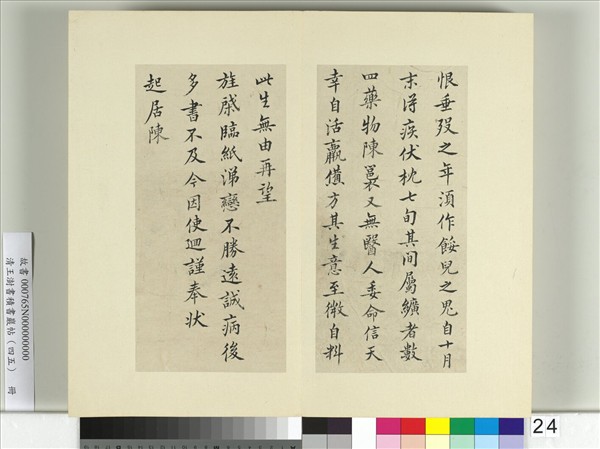 恨垂歿之年須作餒兒之鬼自十月
末得疾伏枕七旬其間屬纊者數
四藥物陳裛又無醫人委命信天
幸自活羸憊方其生意至微自料
此生無由再望
旌棨臨紙涕戀不勝遠誠病後
多書不及今因使迴謹奉狀
起居陳
故書 000765N000000000
清王澍書積書巖帖(四五) 冊
24